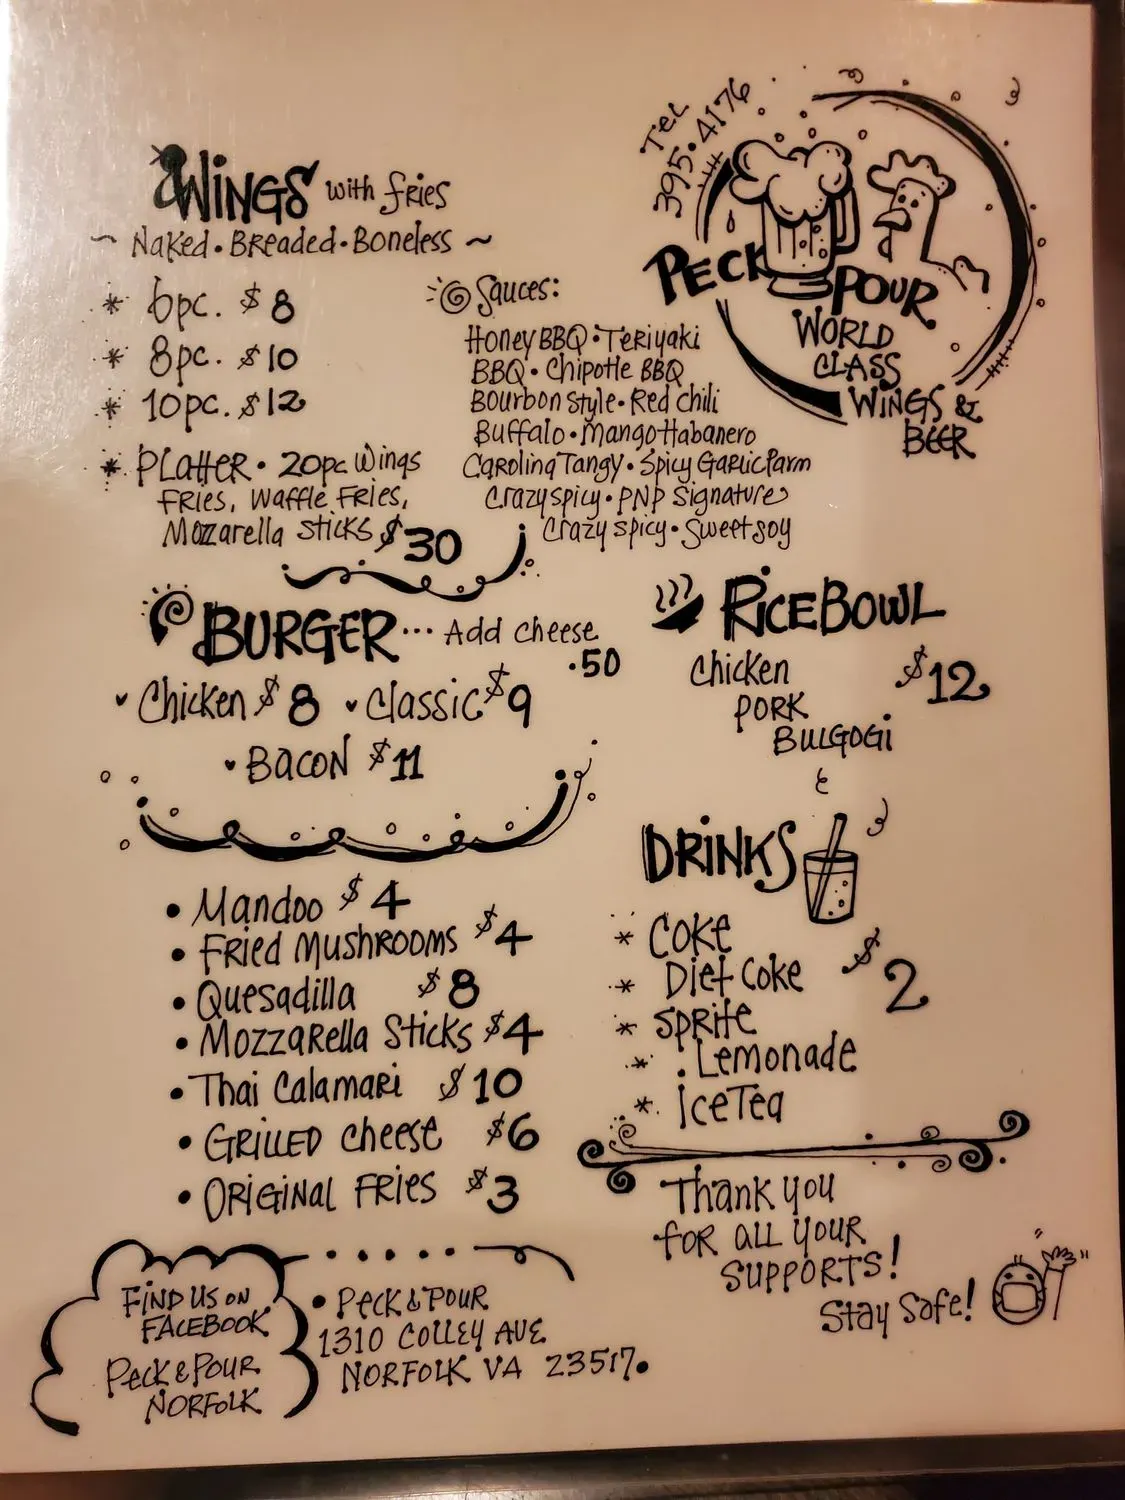 Wings with fries
~ Naked • Breaded • Boneless ~
* 6pc. $8
* 8pc. $10
* 10pc. $12
* Platter • 20pc Wings
Fries, Waffle Fries,
Mozarella sticks $30
Sauces:
Honey BBQ • Teriyaki
BBQ • Chipotle BBQ
Bourbon style • Red chili
Buffalo • Mango Habanero
Carolina Tangy • Spicy Garlic Parm
Crazy spicy • PNP Signature
Crazy spicy • Sweet soy
Tel
395•4176
Peck
Pour
World
Class
Wings &
Beer
Burger... Add cheese
.50
Chicken $8 Classic $9
Bacon $11
Rice Bowl
Chicken $12
Pork
Bulgogi
• Mandoo $4
• Fried Mushrooms $4
• Quesadilla $8
• Mozzarella Sticks $4
• Thai Calamari $10
• Grilled cheese $6
• Original Fries $3
Drinks
* Coke
* Diet Coke $2
* Sprite
* Lemonade
* Ice Tea
Thank you
for all your
supports!
Stay Safe!
Find us on
Facebook
Peck & Pour
Norfolk
• Peck & Pour
1310 Colley Ave
Norfolk VA 23517•